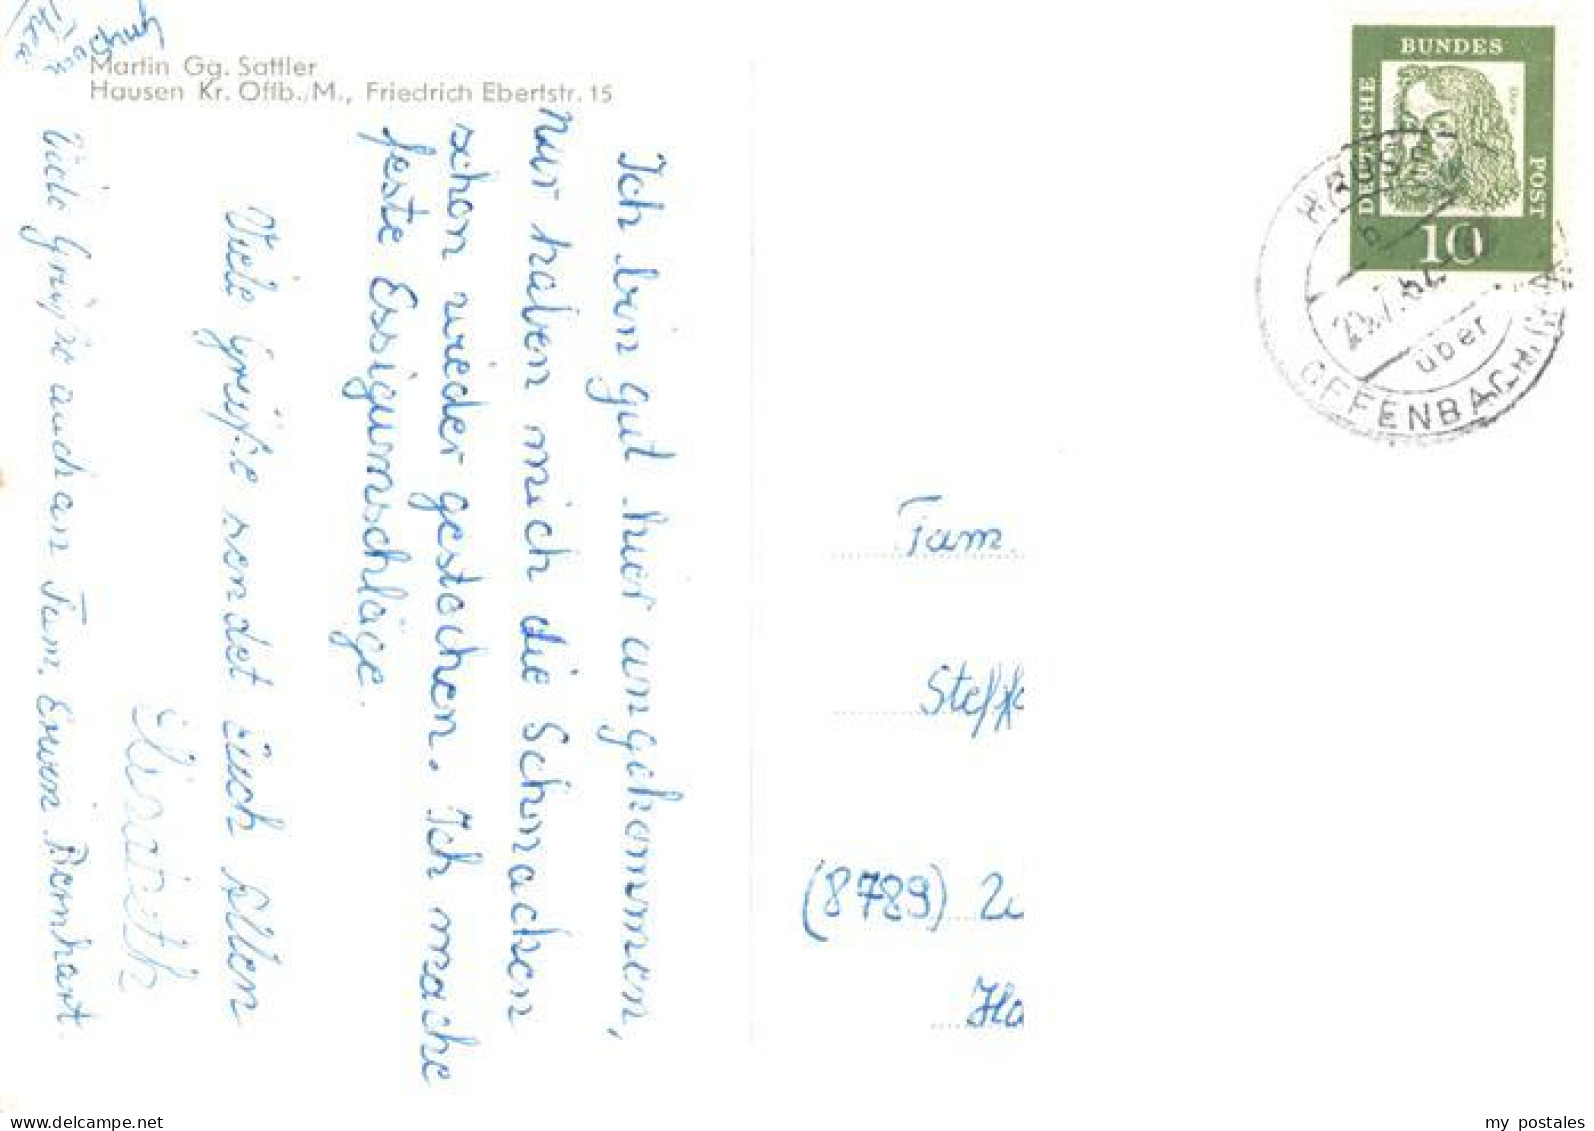 Martin Gg. Sattler
Hausen Kr. Offb./M., Friedrich Ebertstr. 15
Ich bin gut hier angekommen,
nur haben mich die Schnacken
schon wieder gestochen. Ich mache
feste Essigumschläge.
Viele Grüße sendet Euch Allen
Elisabeth
Viele Grüße auch an Fam. Erwin Bernhart.
Thea
DEUTSCHE
BUNDES
POST
10
über
OFFENBACH
Fam.
Steff
(8789)
my postales